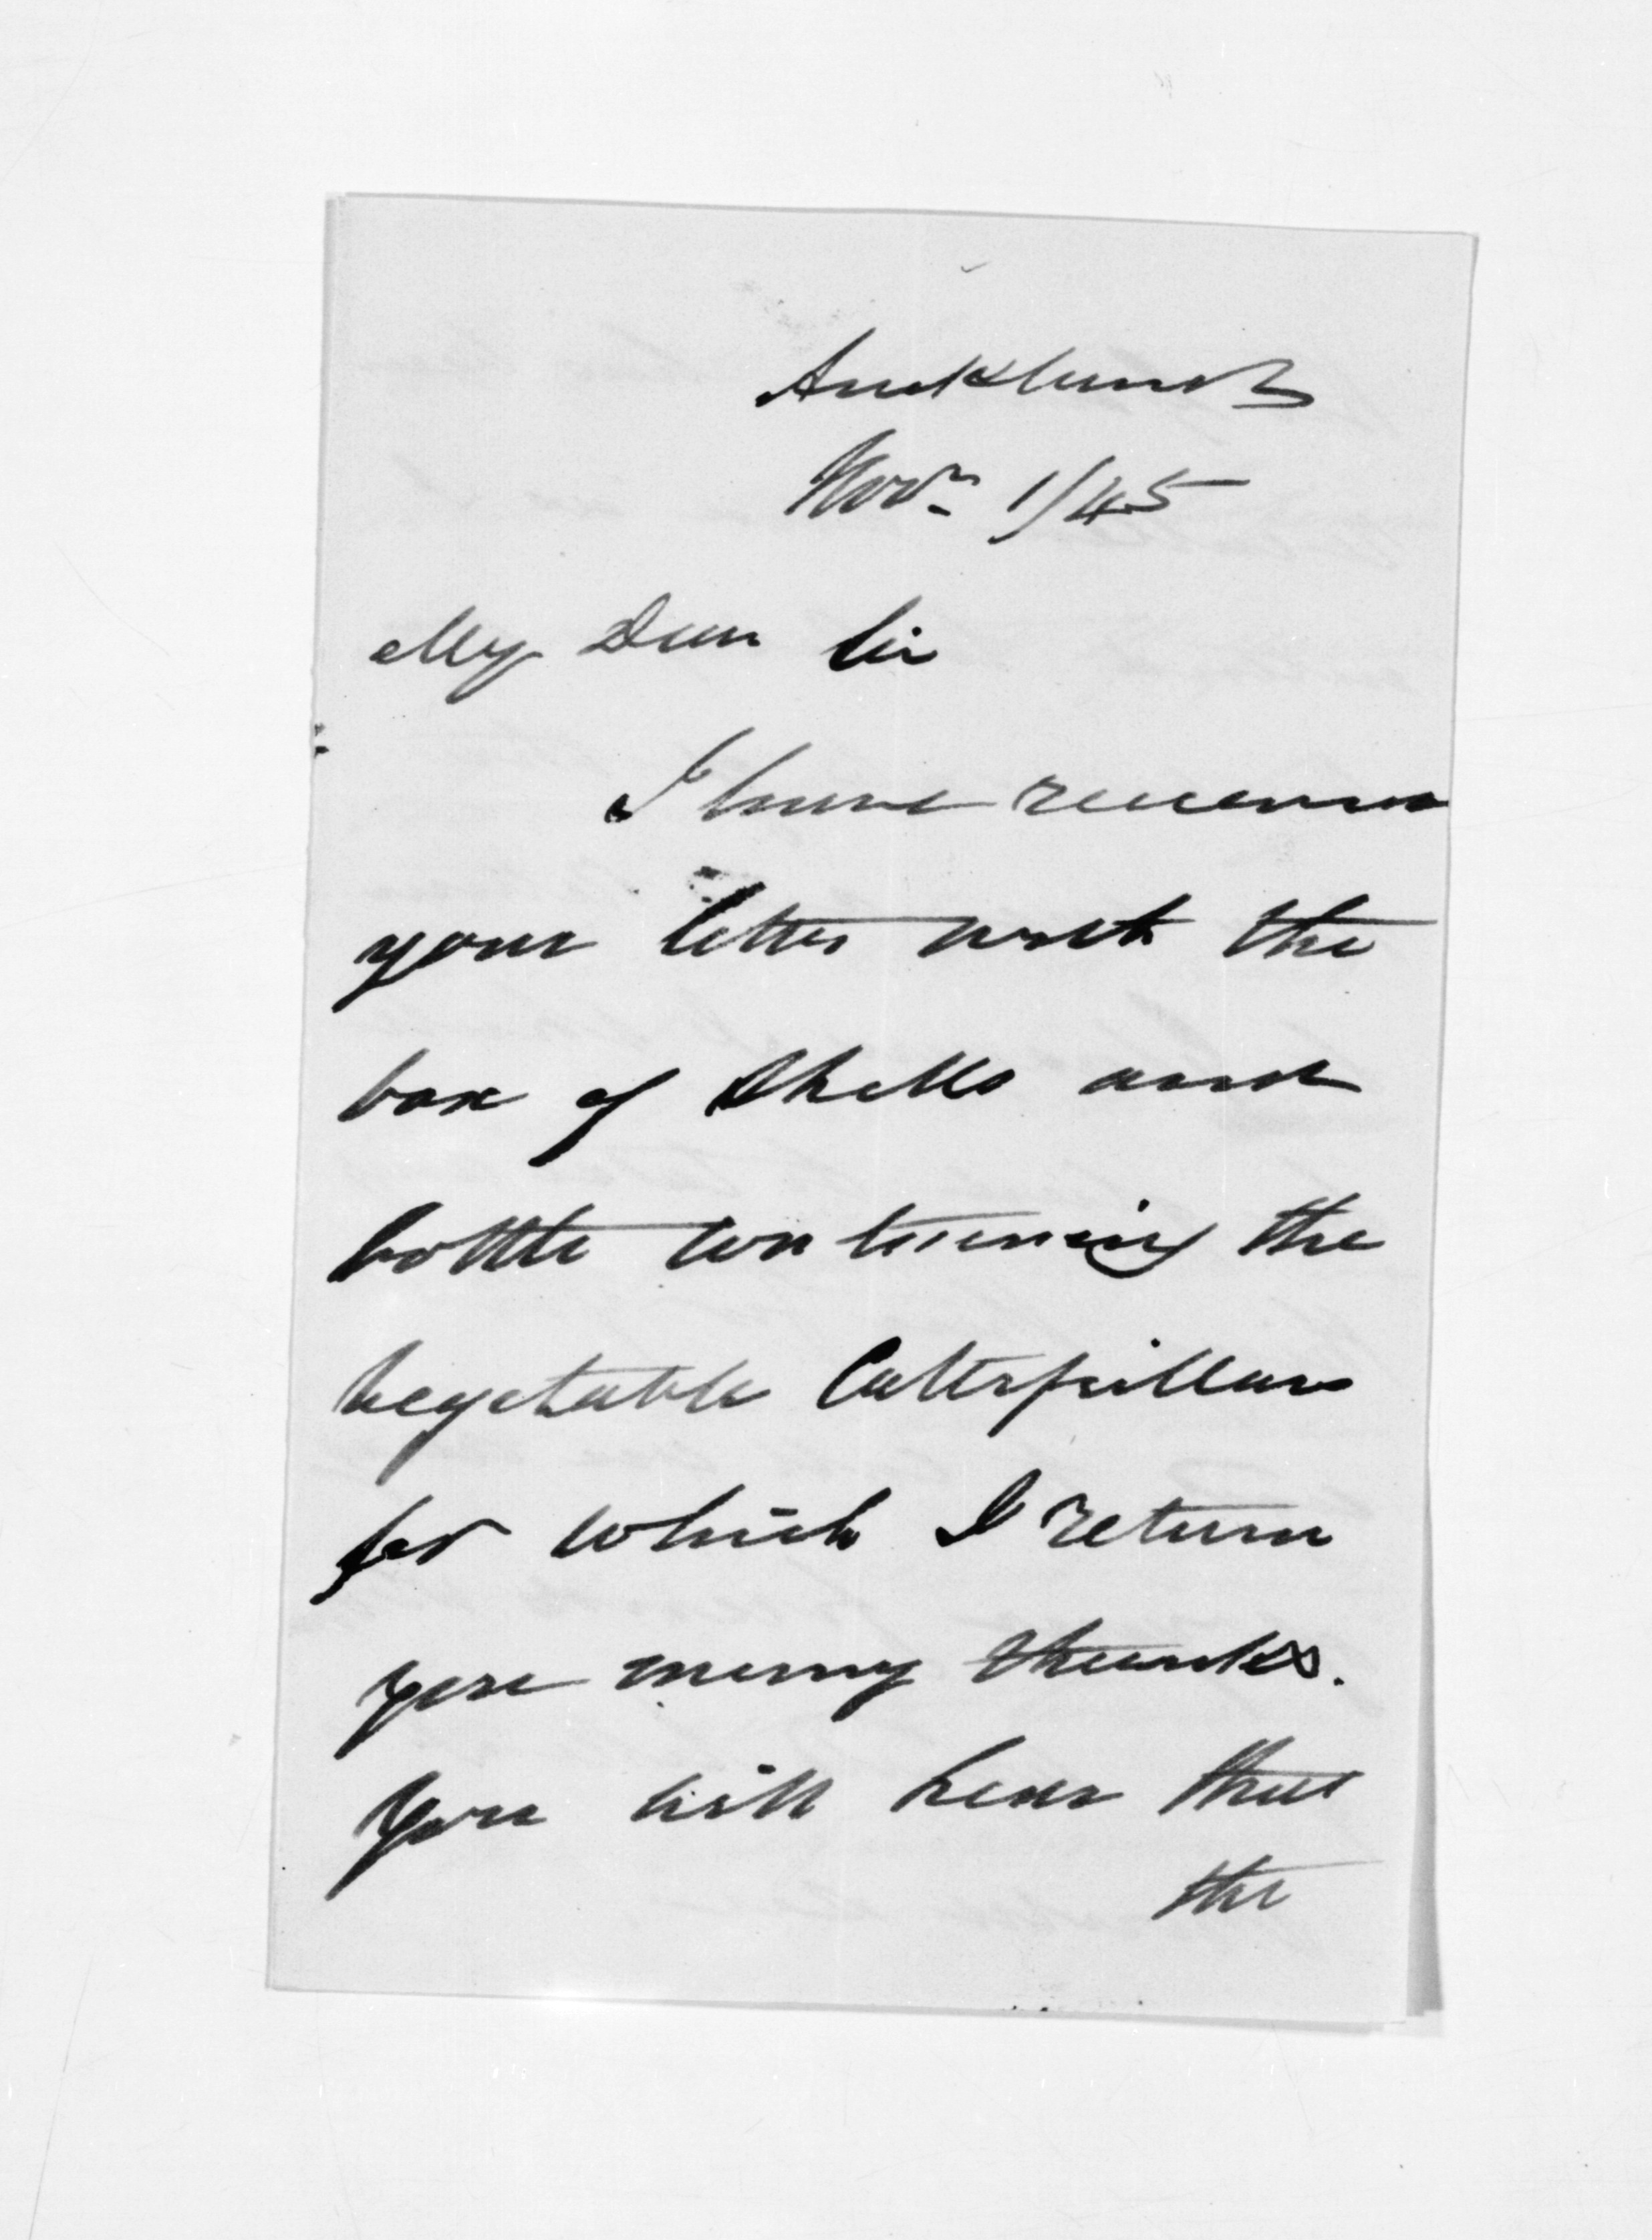 Auckland
Novr 1/45
My Dear Sir
I have received
your letter with the
box of Shells and
bottle containing the
vegetable Catterpillars
for which I return
you many thanks.
You will hear that
the